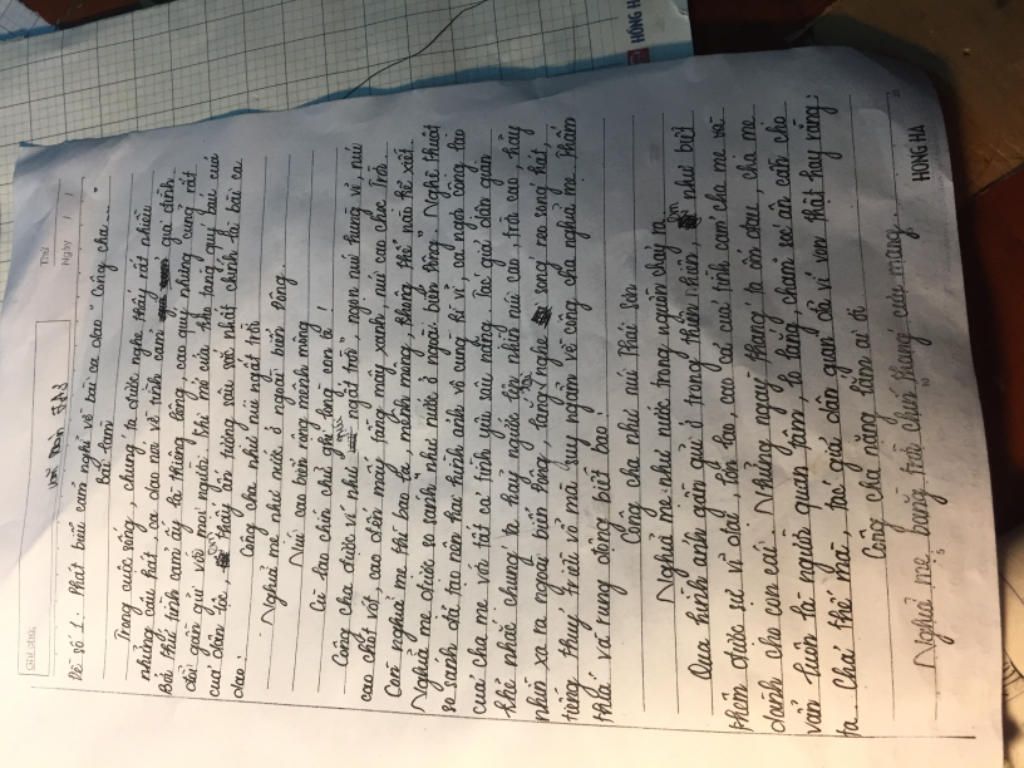 HỒNG HÀ
Thứ
Ngày / /
Đề số 1. Phát biểu cảm nghĩ về bài ca dao "Công cha... "
Bài làm
Trong cuộc sống, chúng ta được nghe thấy rất nhiều
những câu hát, ca dao nói về tình cảm gia đình
Bởi thứ tình cảm ấy là thiêng liêng, cao quý nhưng cũng rất
đỗi gần gũi với mọi người. Khi mở cửa kho tàng quý báu của
của dân tộc, thấy ấn tượng sâu sắc nhất chính là bài ca
dao:
Công cha như núi ngất trời
Nghĩa mẹ như nước ở ngoài biển Đông.
Núi cao biển rộng mênh mông
Cù lao chín chữ ghi lòng con ơi!
Công cha được ví như "núi ngất trời", ngọn núi hùng vĩ, núi
cao chót vót, cao đến mấy tầng mây xanh, núi cao chọc trời.
Còn nghĩa mẹ thì bao la, mênh mông, không thể nào kể xiết
"Nghĩa mẹ được so sánh" như nước ở ngoài biển Đông". Nghệ thuật
so sánh đã tạo nên hai hình ảnh vô cùng kì vĩ, ca ngợi công lao
của cha mẹ với tất cả tình yêu sâu nặng. Tác giả dân gian
khẽ nhắc chúng ta hãy ngước lên nhìn núi cao, trời cao, hãy
nhìn xa ra ngoài biển Đông, lắng tai nghe sóng reo sóng hát,
tiếng thuỷ triều vỗ mà suy ngẫm về công cha nghĩa mẹ. Thấm
thía và rung động biết bao!
Công cha như núi Thái Sơn
Nghĩa mẹ như nước trong nguồn chảy ra
Qua hình ảnh gần gũi ở trong thiên nhiên, như biết
thêm được sự vĩ đại, lớn lao, cao cả của tình cảm cha mẹ và
dành cho con cái. Những ngày tháng ta ốm đau, cha mẹ
vẫn luôn là người quan tâm, lo lắng, chăm sóc ân cần cho
ta. Chả thế mà, tác giả dân gian đã ví von thật hay rằng:
Công cha nặng lắm ai ơi
Nghĩa mẹ bằng trời chín tháng cưu mang.
HONG HA